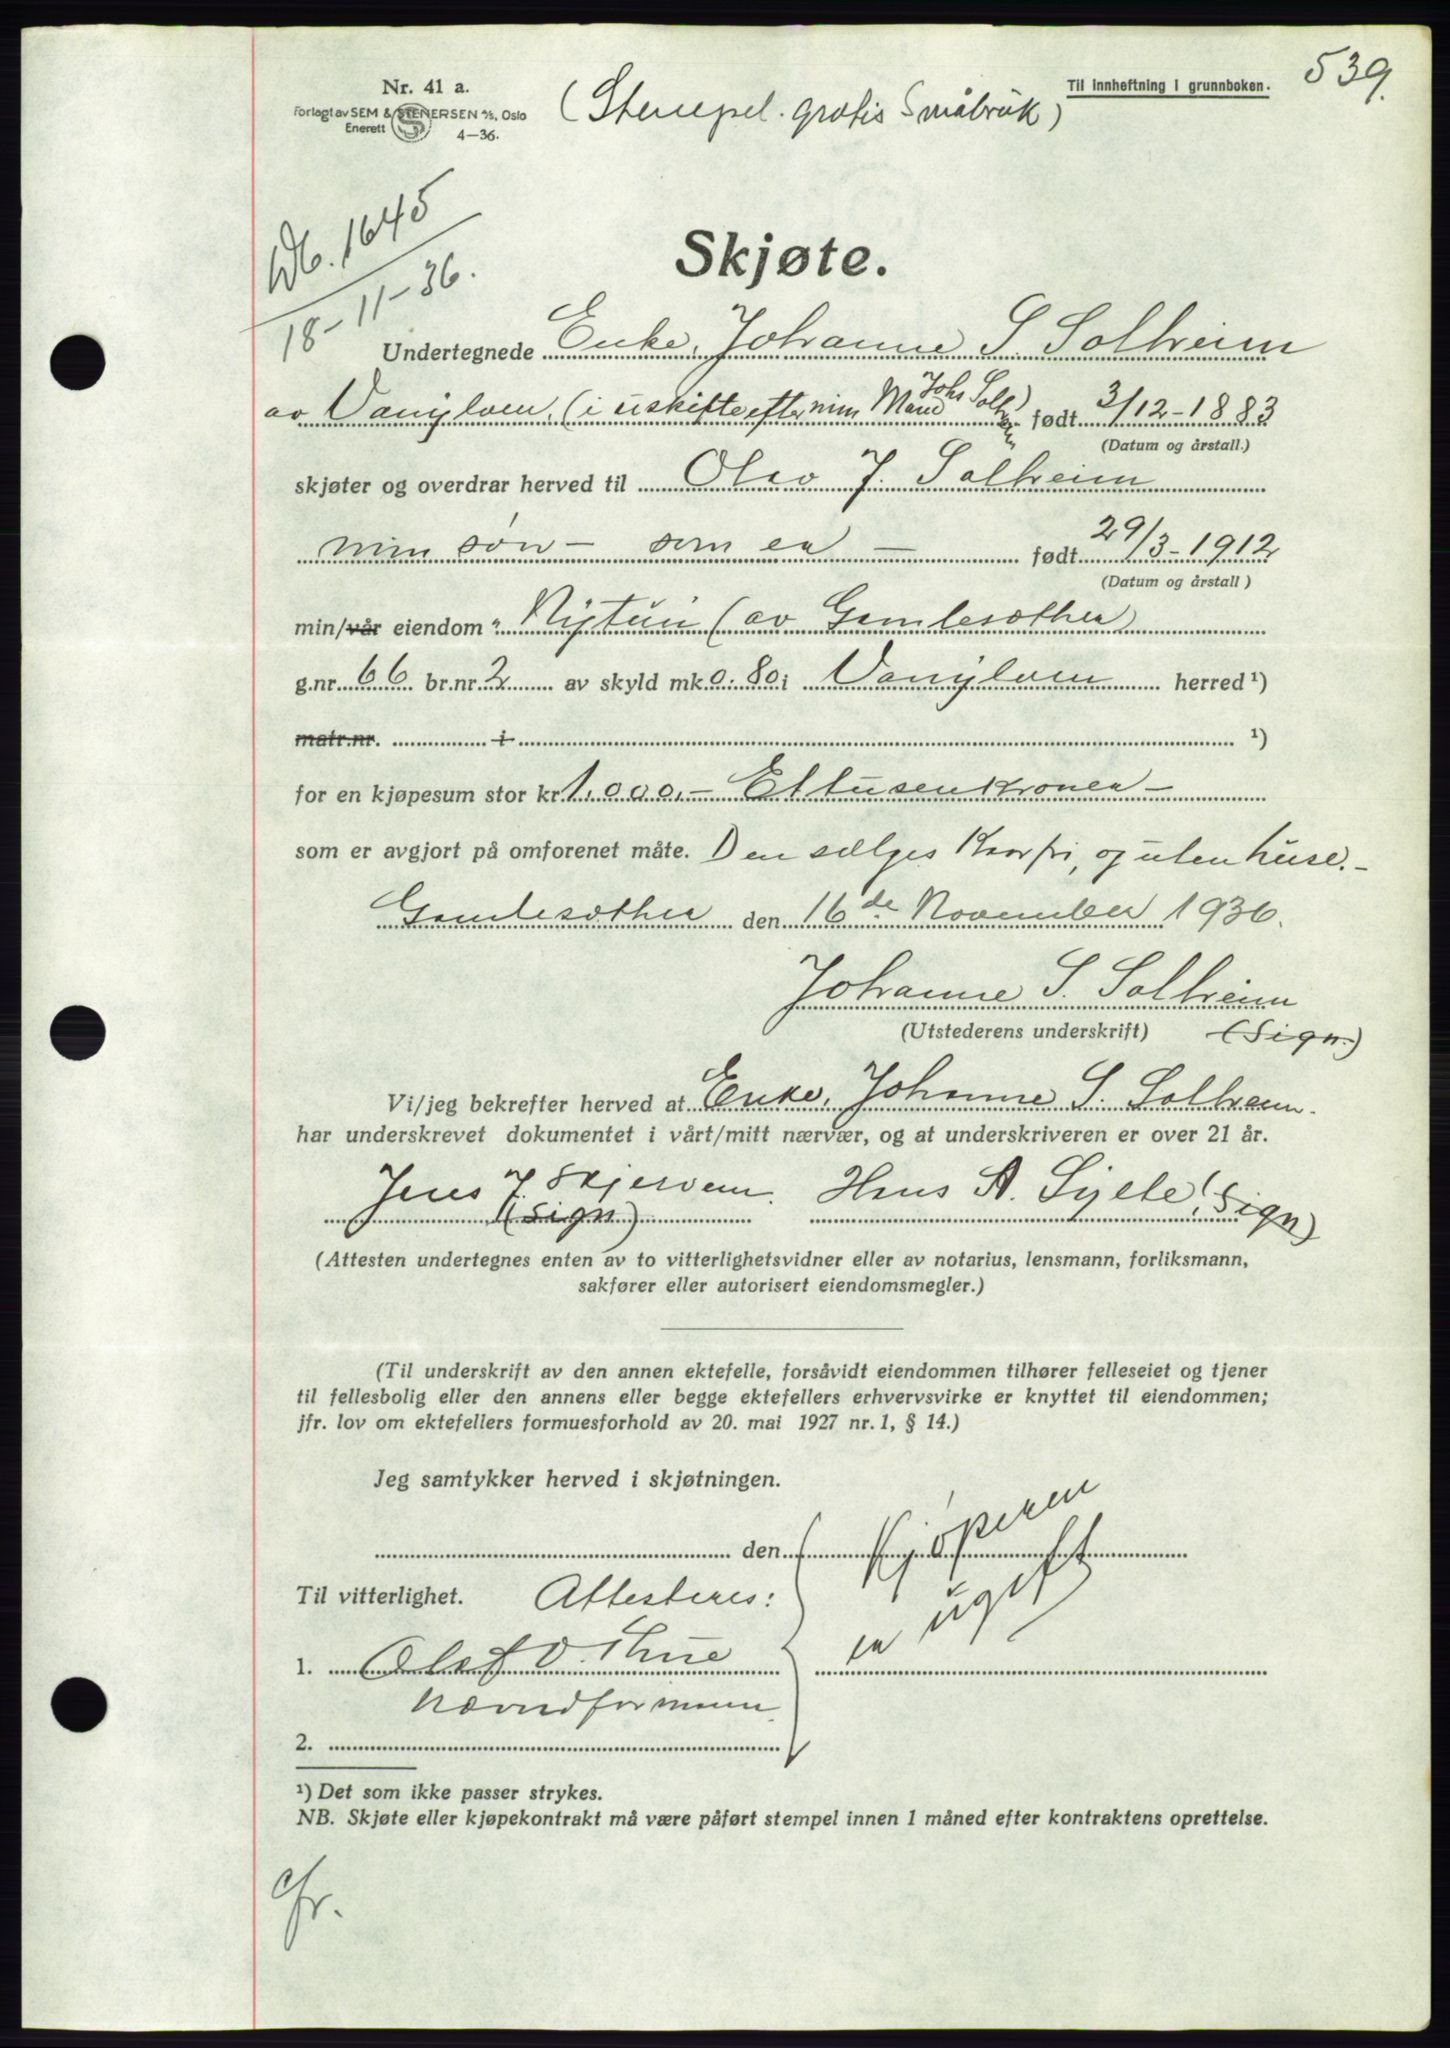 539.
Nr. 41 a.
Til innheftning i grunnboken.
Forlagt av SEM & STENERSEN A/S, Oslo
Enerett 4—36.
(Stempel. gratis Småbruk)
Db. 1645
18-11-36.
Skjøte.
Undertegnede Enke, Johanne S. Solheim
av Vanylven, (i uskifte efter min Mand Johs Solheim) født 3/12-1883
(Datum og årstall.)
skjøter og overdrar herved til Olav J. Solheim
min søn — som er — født 29/3-1912
(Datum og årstall)
min/vår eiendom „Nytun (av Gamlesæther)
g.nr. 66 br.nr. 2 av skyld mk. 0.80 i Vanylven herred ¹)
matr.nr. i ¹)
for en kjøpesum stor kr. 1.000.- Ettusenkroner —
som er avgjort på omforenet måte. Den sælges kårfri, og uten huse.-
Gamlesæther den 16de November 1936.
Johanne S. Solheim
(Utstederens underskrift) (Sign.)
Vi/jeg bekrefter herved at Enke, Johanne S. Solheim.
har underskrevet dokumentet i vårt/mitt nærvær, og at underskriveren er over 21 år.
Jens J. Skjervem. Hans A. Sylte (Sign)
(Sign)
(Attesten undertegnes enten av to vitterlighetsvidner eller av notarius, lensmann, forliksmann,
sakfører eller autorisert eiendomsmegler.)
(Til underskrift av den annen ektefelle, forsåvidt eiendommen tilhører felleseiet og tjener
til fellesbolig eller den annens eller begge ektefellers erhvervsvirke er knyttet til eiendommen;
jfr. lov om ektefellers formuesforhold av 20. mai 1927 nr. 1, § 14.)
Jeg samtykker herved i skjøtningen.
den Kjøperen
Til vitterlighet. Attesteres:
er ugift
1. Olaf O. Thue
Nævndformann.
2.
¹) Det som ikke passer strykes.
NB. Skjøte eller kjøpekontrakt må være påført stempel innen 1 måned efter kontraktens oprettelse.